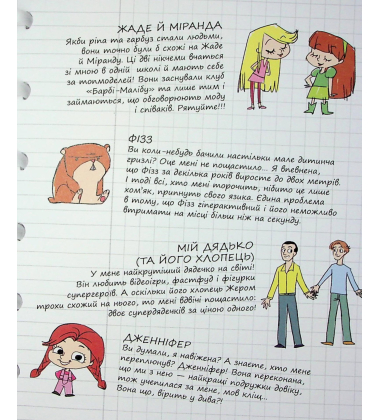 ЖАДЕ Й МІРАНДА
Якби ріпа та гарбуз стали людьми,
вони точно були б схожі на Жаде
й Міранду. Ці дві нікчеми вчаться
зі мною в одній школі й мають себе
за топмоделей! Вони заснували клуб
«Барбі-Малібу» та лише тим і
займаються, що обговорюють моду
і співаків. Рятуйте!!!
ФІЗЗ
Ви коли-небудь бачили настільки мале дитинча
гризлі? Оце мені не пощастило... Я впевнена,
що Фізз за декілька років виросте до двох метрів.
І тоді всі, хто мені торочить, нібито це лише
хом'як, припнуть свого язика. Єдина проблема
в тому, що Фізз гіперактивний і його неможливо
втримати на місці більш ніж на секунду.
МІЙ ДЯДЬКО
(ТА ЙОГО ХЛОПЕЦЬ)
У мене найкрутіший дядечко на світі!
Він любить відеоігри, фастфуд і фігурки
супергероїв. А оскільки його хлопець Жером
трохи схожий на нього, то мені вдвічі пощастило:
двоє супердядечків за ціною одного!
ДЖЕННІФЕР
Ви думали, я навіжена? А знаєте, хто мене
переплюнув? Дженніфер! Вона переконана,
що ми з нею — найкращі подружки довіку,
тож учепилася за мене, мов кліщ...
Вона що, вірить у дива?!